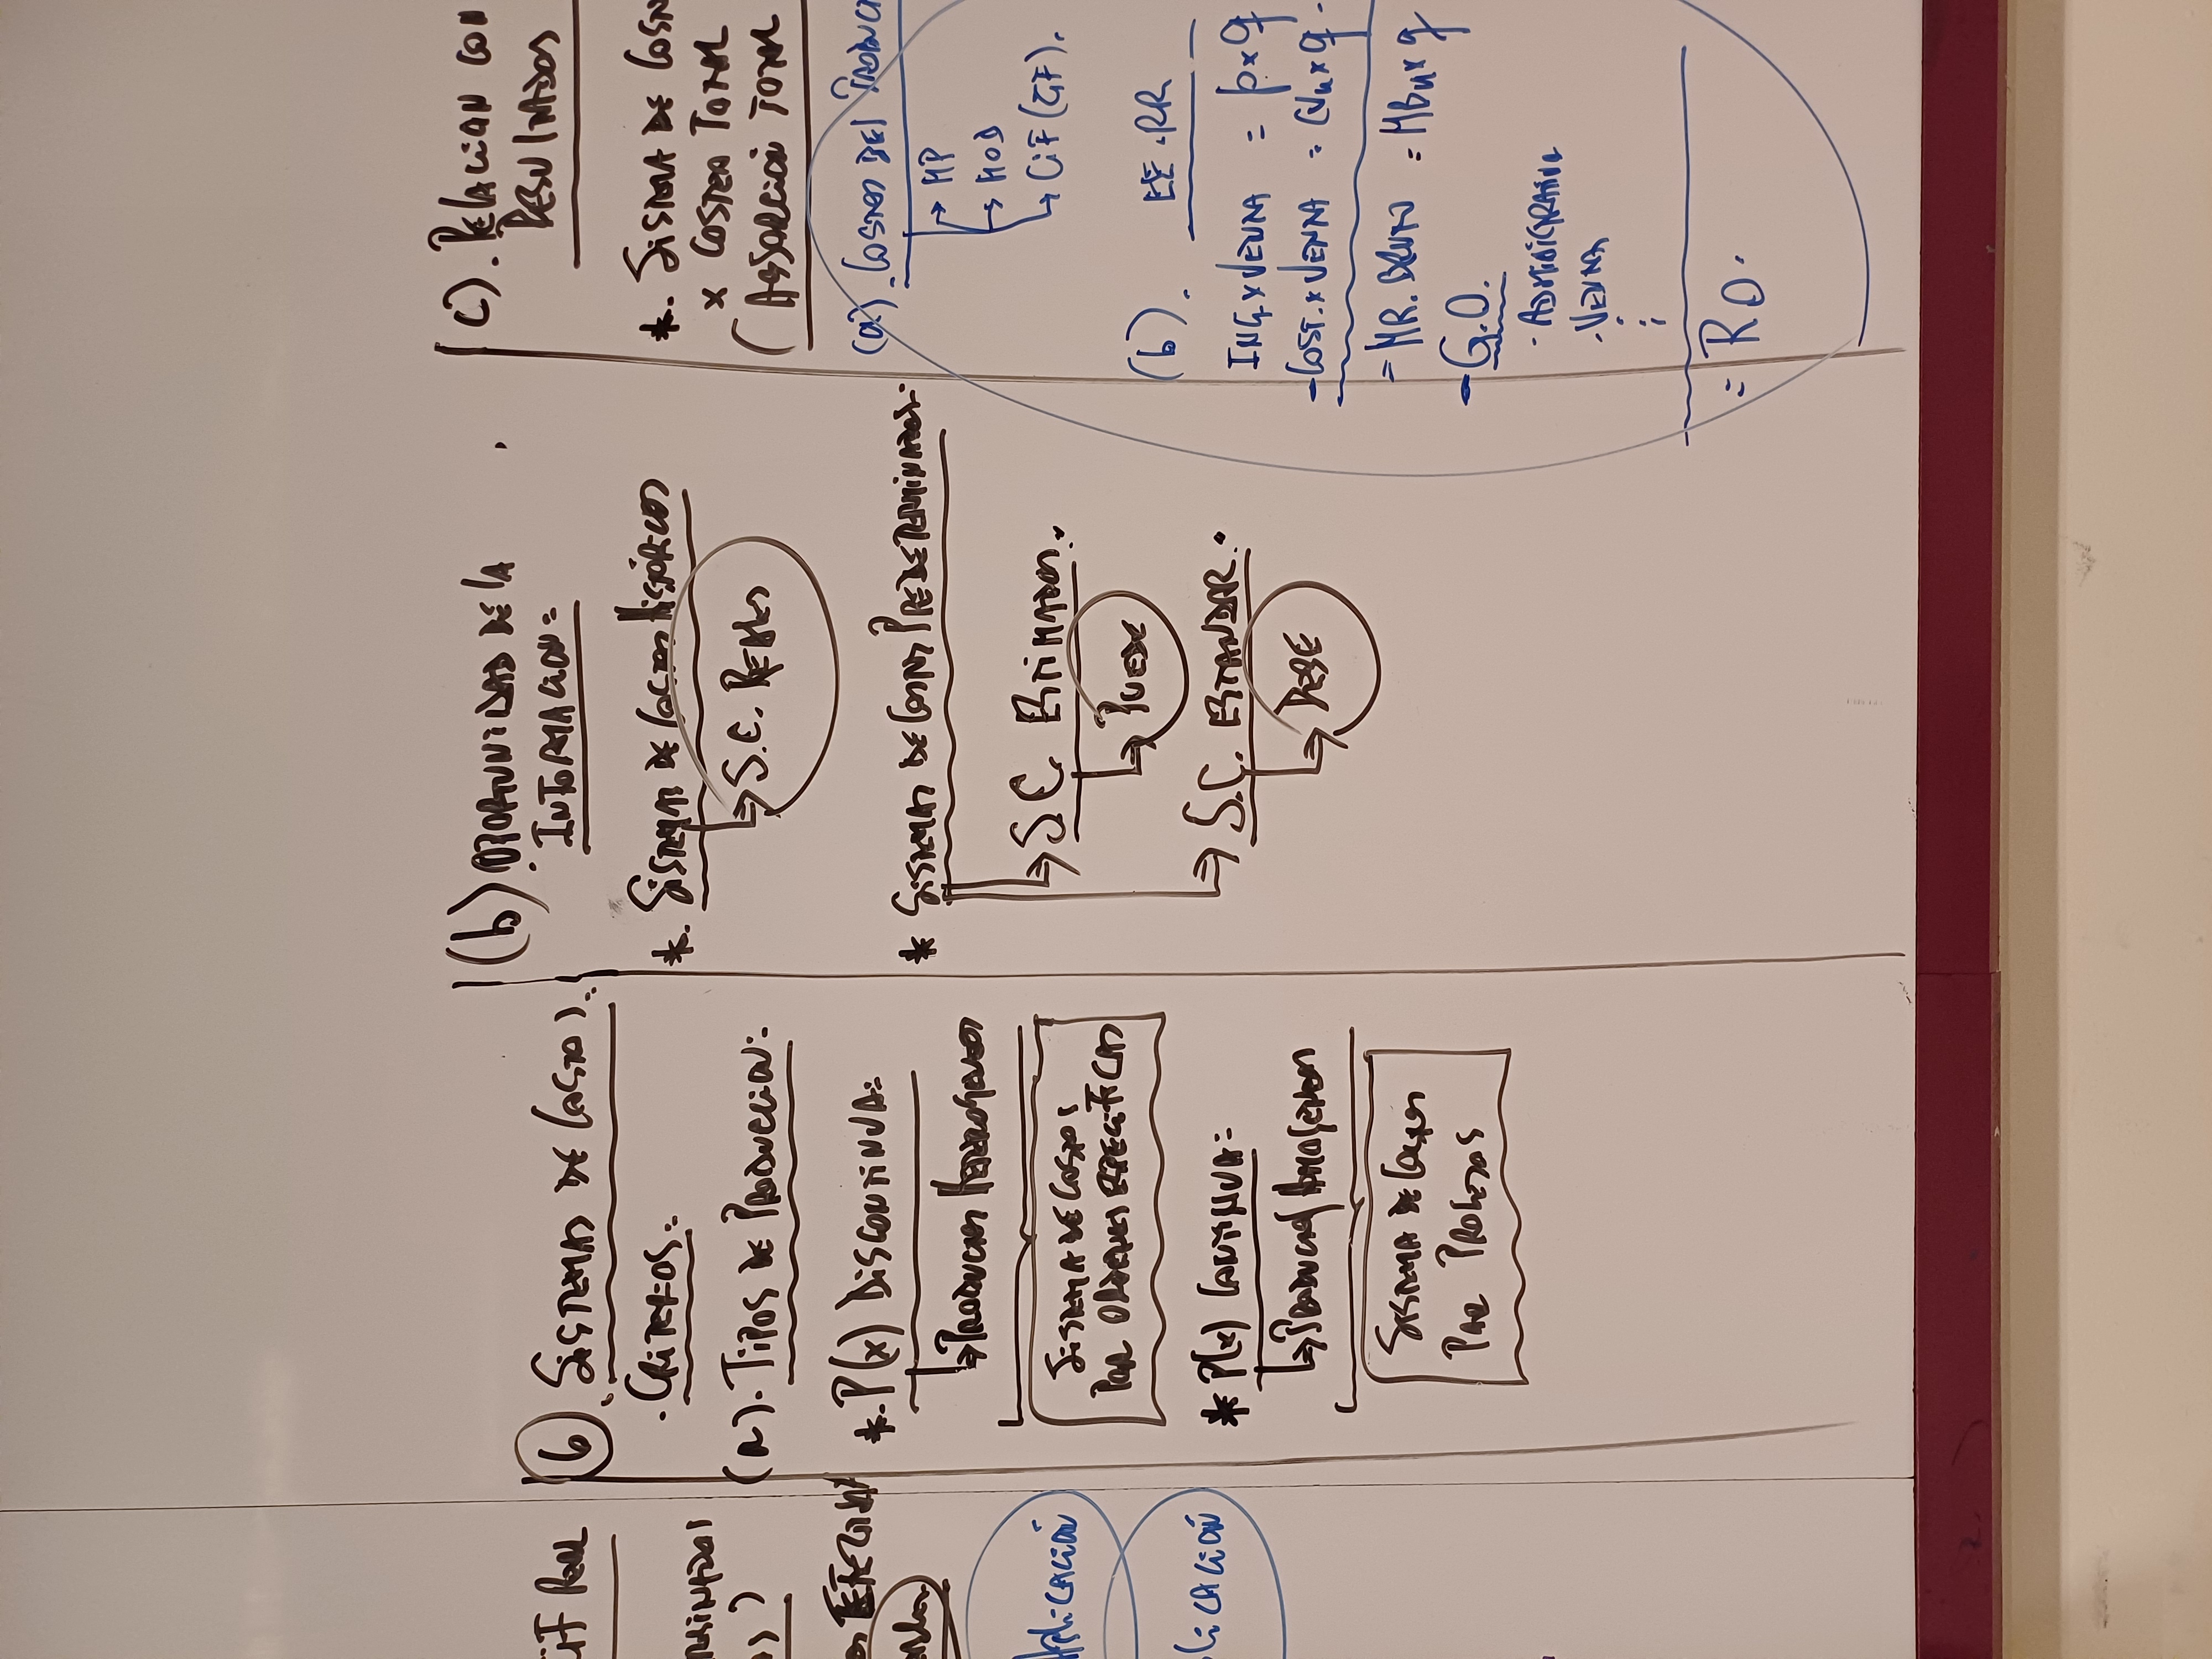 CIF REAL
APLICACIÓN
LICACIÓN
6. SISTEMAS DE COSTOS:
. CRITERIOS:
(a). TIPOS DE PRODUCCION:
*. P(x) DISCONTINUA:
PRODUCTOS HETEROGENEOS
SISTEMA DE COSTOS
POR ORDENES ESPECIFICAS
* P(x) CONTINUA:
PRODUCTOS HOMOGENEOS
SISTEMA DE COSTOS
POR PROCESOS
(b). OPORTUNIDAD DE LA
INFORMACION:
*. SISTEMAS DE COSTOS HISTÓRICOS
S.C. REALES
* SISTEMAS DE COSTOS PREDETERMINADOS:
S.C. ESTIMADOS.
PUEDE
S.C. ESTANDAR.
DEBE
C). RELACION CON
RESULTADOS
*. SISTEMA DE COSTO
x COSTEO TOTAL
(ABSORCION TOTAL
(a). COSTOS DEL PRODUCT
MP
MOD
CIF (GF).
(b). EE.RR
ING. x VENTA = p x q
- COST. x VENTA = CVu x q
= MR. BRUTO = MBu x q
- G.O.
. ADMINISTRATIVO
. VENTA
= RO.